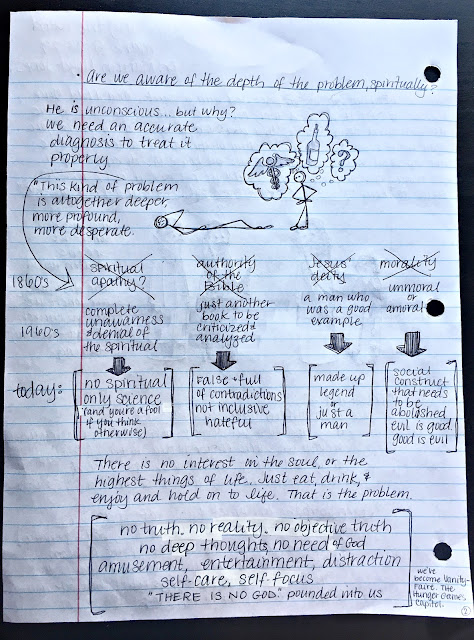 · Are we aware of the depth of the problem, spiritually?
He is unconscious... but why?
we need an accurate
diagnosis to treat it
properly
?
"This kind of problem
is altogether deeper,
more profound,
more desperate.
1860's
spiritual
apathy?
authority
of the
Bible
Jesus'
deity
morality
1960's
complete
unawarness
& denial of
the spiritual
just another
book to be
criticized &
analyzed
a man who
was a good
example
unmoral
or
amoral
today:
no spiritual
only science
(and you're a fool
if you think
otherwise)
False & full
of contradictions
not inclusive
hateful
made up
legend
or
just a
man
social
construct
that needs
to be
abolished
evil is good
good is evil
There is no interest in the soul, or the
highest things of life. Just eat, drink, &
enjoy and hold on to life. That is the problem.
no truth. no reality. no objective truth
no deep thoughts no need of God
amusement, entertainment, distraction
self-care, self focus
"THERE IS NO GOD" pounded into us
we've
become Vanity
Faire. The
Hunger Games
Capitol.
2